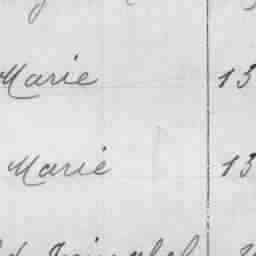 Marie 13
Marie 13